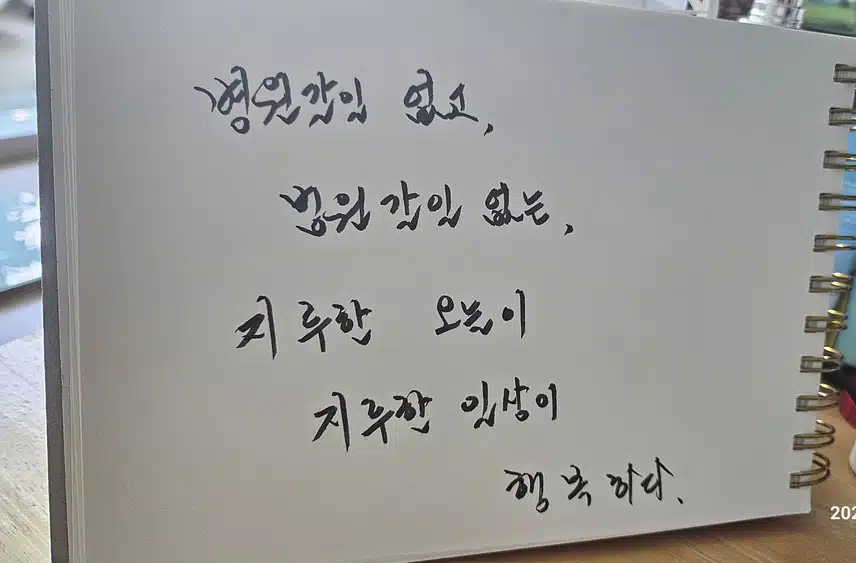 병원갈일 없고,
법원갈일 없는,
지루한 오늘이
지루한 일상이
행복하다.
202